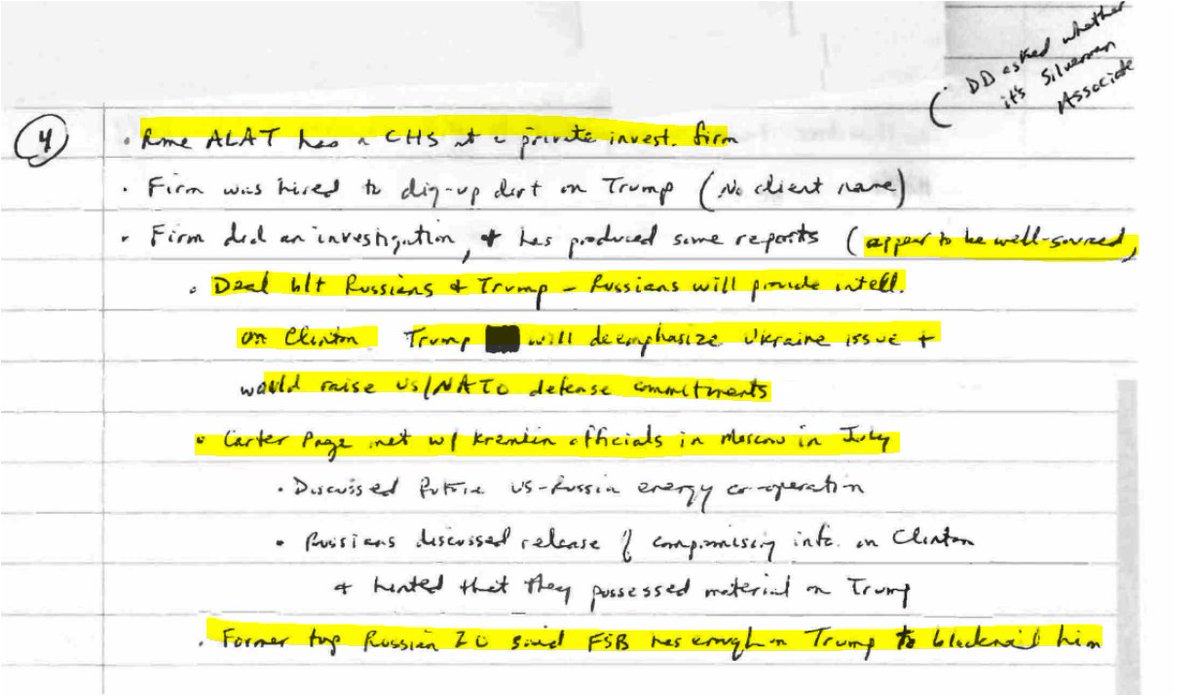 ( DD asked whether
it's Silverman
Associate
4
· Rome ALAT has a CHS at a private invest. firm
· Firm was hired to dig-up dirt on Trump (No client name)
· Firm did an investigation, + has produced some reports (appear to be well-sourced,
· Deal b/t Russians & Trump – Russians will provide intell.
on Clinton Trump will deemphasize Ukraine issue +
would raise US/NATO defense commitments
· Carter Page met w/ Kremlin officials in Moscow in July
· Discussed future US-Russia energy co-operation
· Russians discussed release of compromising info. on Clinton
+ hinted that they possessed material on Trump
· Former top Russian IO said FSB has enough on Trump to blackmail him